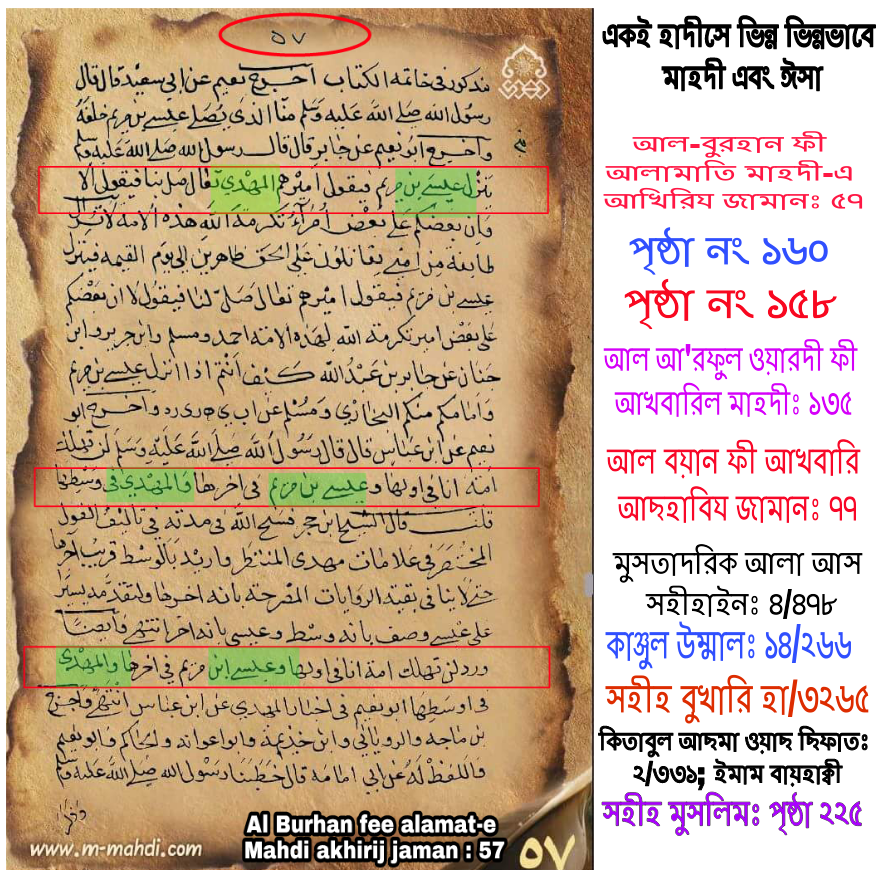 ٥٧
مذكور في خاتمه الكتاب اخرج نعيم عن ابي سعيد قال قال
رسول الله صلى الله عليه وسلم منا الذي يصلي عيسى بن مريم خلفه
واخرج ابو نعيم عن جابر قال قال رسول الله صلى الله عليه وسلم
ينزل عيسى بن مريم فيقول اميرهم المهدي تعال صل بنا فيقول الا
وان بعضكم على بعض امراء تكرمة الله هذه الامة
طايفة من امتي يقاتلون على الحق ظاهرين الى يوم القيمه فينزل
عيسى بن مريم فيقول اميرهم تعال صل لنا فيقول لا ان بعضكم
على بعض امير تكرمة الله لهذه الامة احمد ومسلم وابن جرير وابن
حبان عن جابر بن عبد الله كيف انتم اذا انزل عيسى بن مريم
وامامكم منكم البخاري ومسلم عن ابي واخرج ابو
نعيم عن ابن عباس قال قال رسول الله صلى الله عليه وسلم لن تهلك
امة انا في اولها وعيسى بن مريم في اخرها والمهدي في وسطها
قلت قال الشيخ ابن حجر فسح الله في مدته في تاليف القول
المختصر في علامات مهدي المنتظر واريد بالوسط قريب اخرها
حتى لا ينافي بقية الروايات المصرحة بانه اخرها ولتقدمه بيسير
على عيسى وصف بانه وسط وعيسى بانه اخر انتهى وايضا
ورد لن تهلك امة انا في اولها وعيسى ابن مريم في اخرها والمهدي
في اوسطها ابو نعيم في اخبار المهدي عن ابن عباس انتهى واخرج
بن ماجه والروياني وابن خذيمة وابو اعوانه والحاكم وابو نعيم
واللفظ له عن ابي امامه قال خطبنا رسول الله صلى الله عليه وسلم
Al Burhan fee alamat-e
Mahdi akhirij jaman : 57
www.m-mahdi.com
٥٧
একই হাদীসে ভিন্ন ভিন্নভাবে
মাহদী এবং ঈসা
আল-বুরহান ফী
আলামাতি মাহদী-এ
আখিরিয জামানঃ ৫৭
পৃষ্ঠা নং ১৬০
পৃষ্ঠা নং ১৫৮
আল আ'রফুল ওয়ারদী ফী
আখবারিল মাহদীঃ ১৩৫
আল বয়ান ফী আখবারি
আছহাবিয জামানঃ ৭৭
মুসতাদরিক আলা আস
সহীহাইনঃ ৪/৪৭৮
কাঞ্জুল উম্মালঃ ১৪/২৬৬
সহীহ বুখারি হা/৩২৬৫
কিতাবুল আছমা ওয়াছ ছিফাতঃ
২/৩৩১; ইমাম বায়হাক্বী
সহীহ মুসলিমঃ পৃষ্ঠা ২২৫